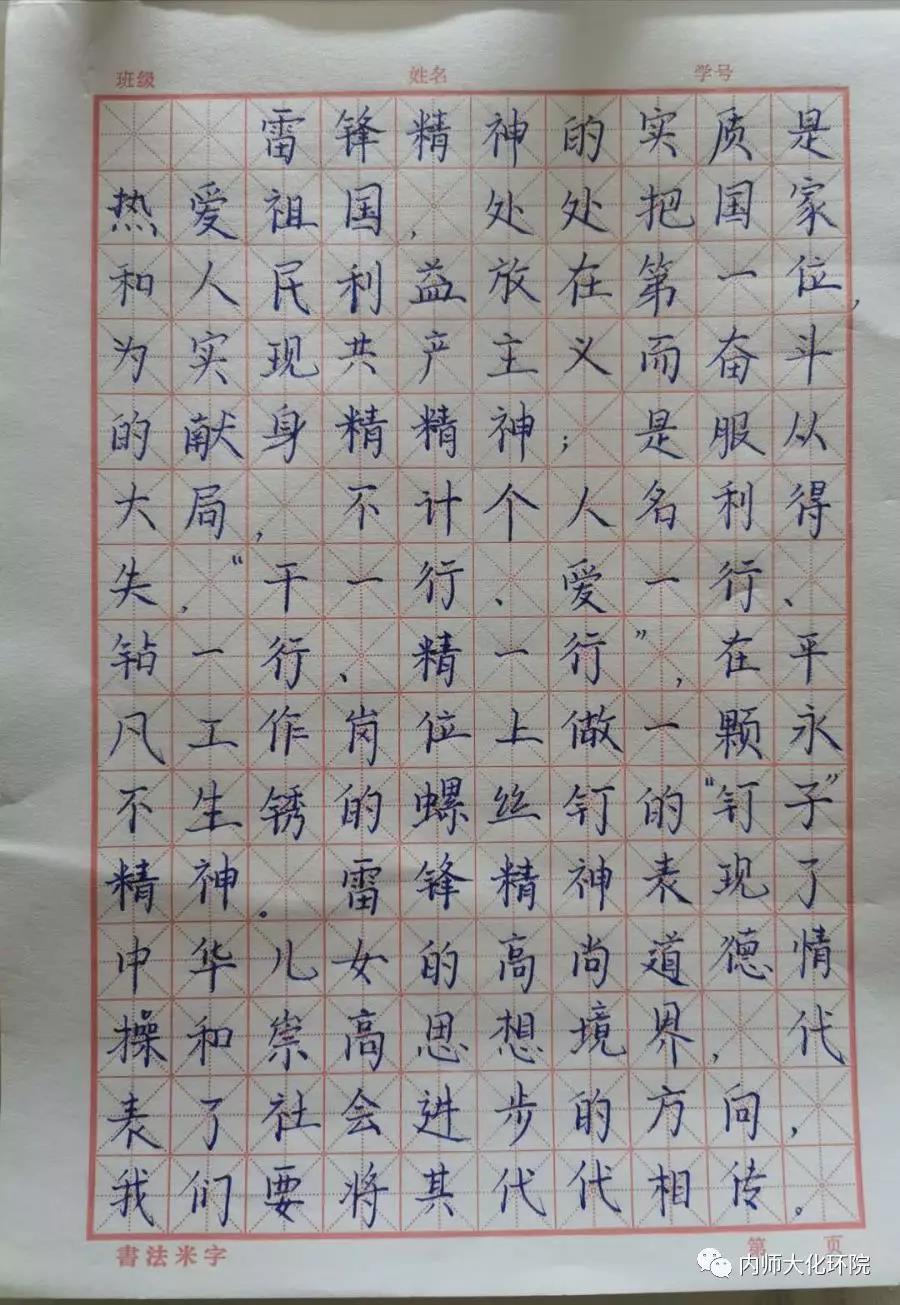 班级 姓名 学号
雷锋精神的实质是
热爱祖国，处处把国家
和人民利益放在第一位，
为实现共产主义而奋斗
的献身精精神；是服从
大局，不计个人名利得
失，“干一行、爱一行、
钻一行、精一行”，在平
凡工作岗位上做一颗永
不生锈的螺丝钉的“钉子”
精神。雷锋精神表现了
中华儿女的高尚道德情
操和崇高思想境界，代
表了社会进步的方向，
我们要将其代代相传。
書法米字 第 页
内师大化环院